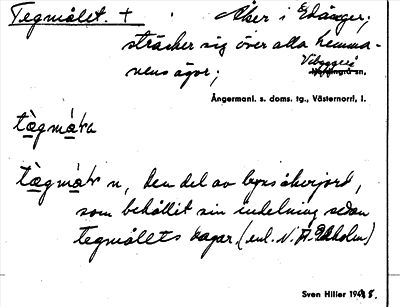 Tegmålet. + Åker i Edånger;
sträcker sig över alla hemma-
nens ägor; Vibyggerå
sn.
Ångermanl. s. doms. tg., Västernorrl. l.
tægmåta
tægmåtr n, den del av byns åkerjord,
som behållit sin indelning sedan
tegmålets dagar. (enl. N. A. Ekholm)
Sven Hiller 1928.